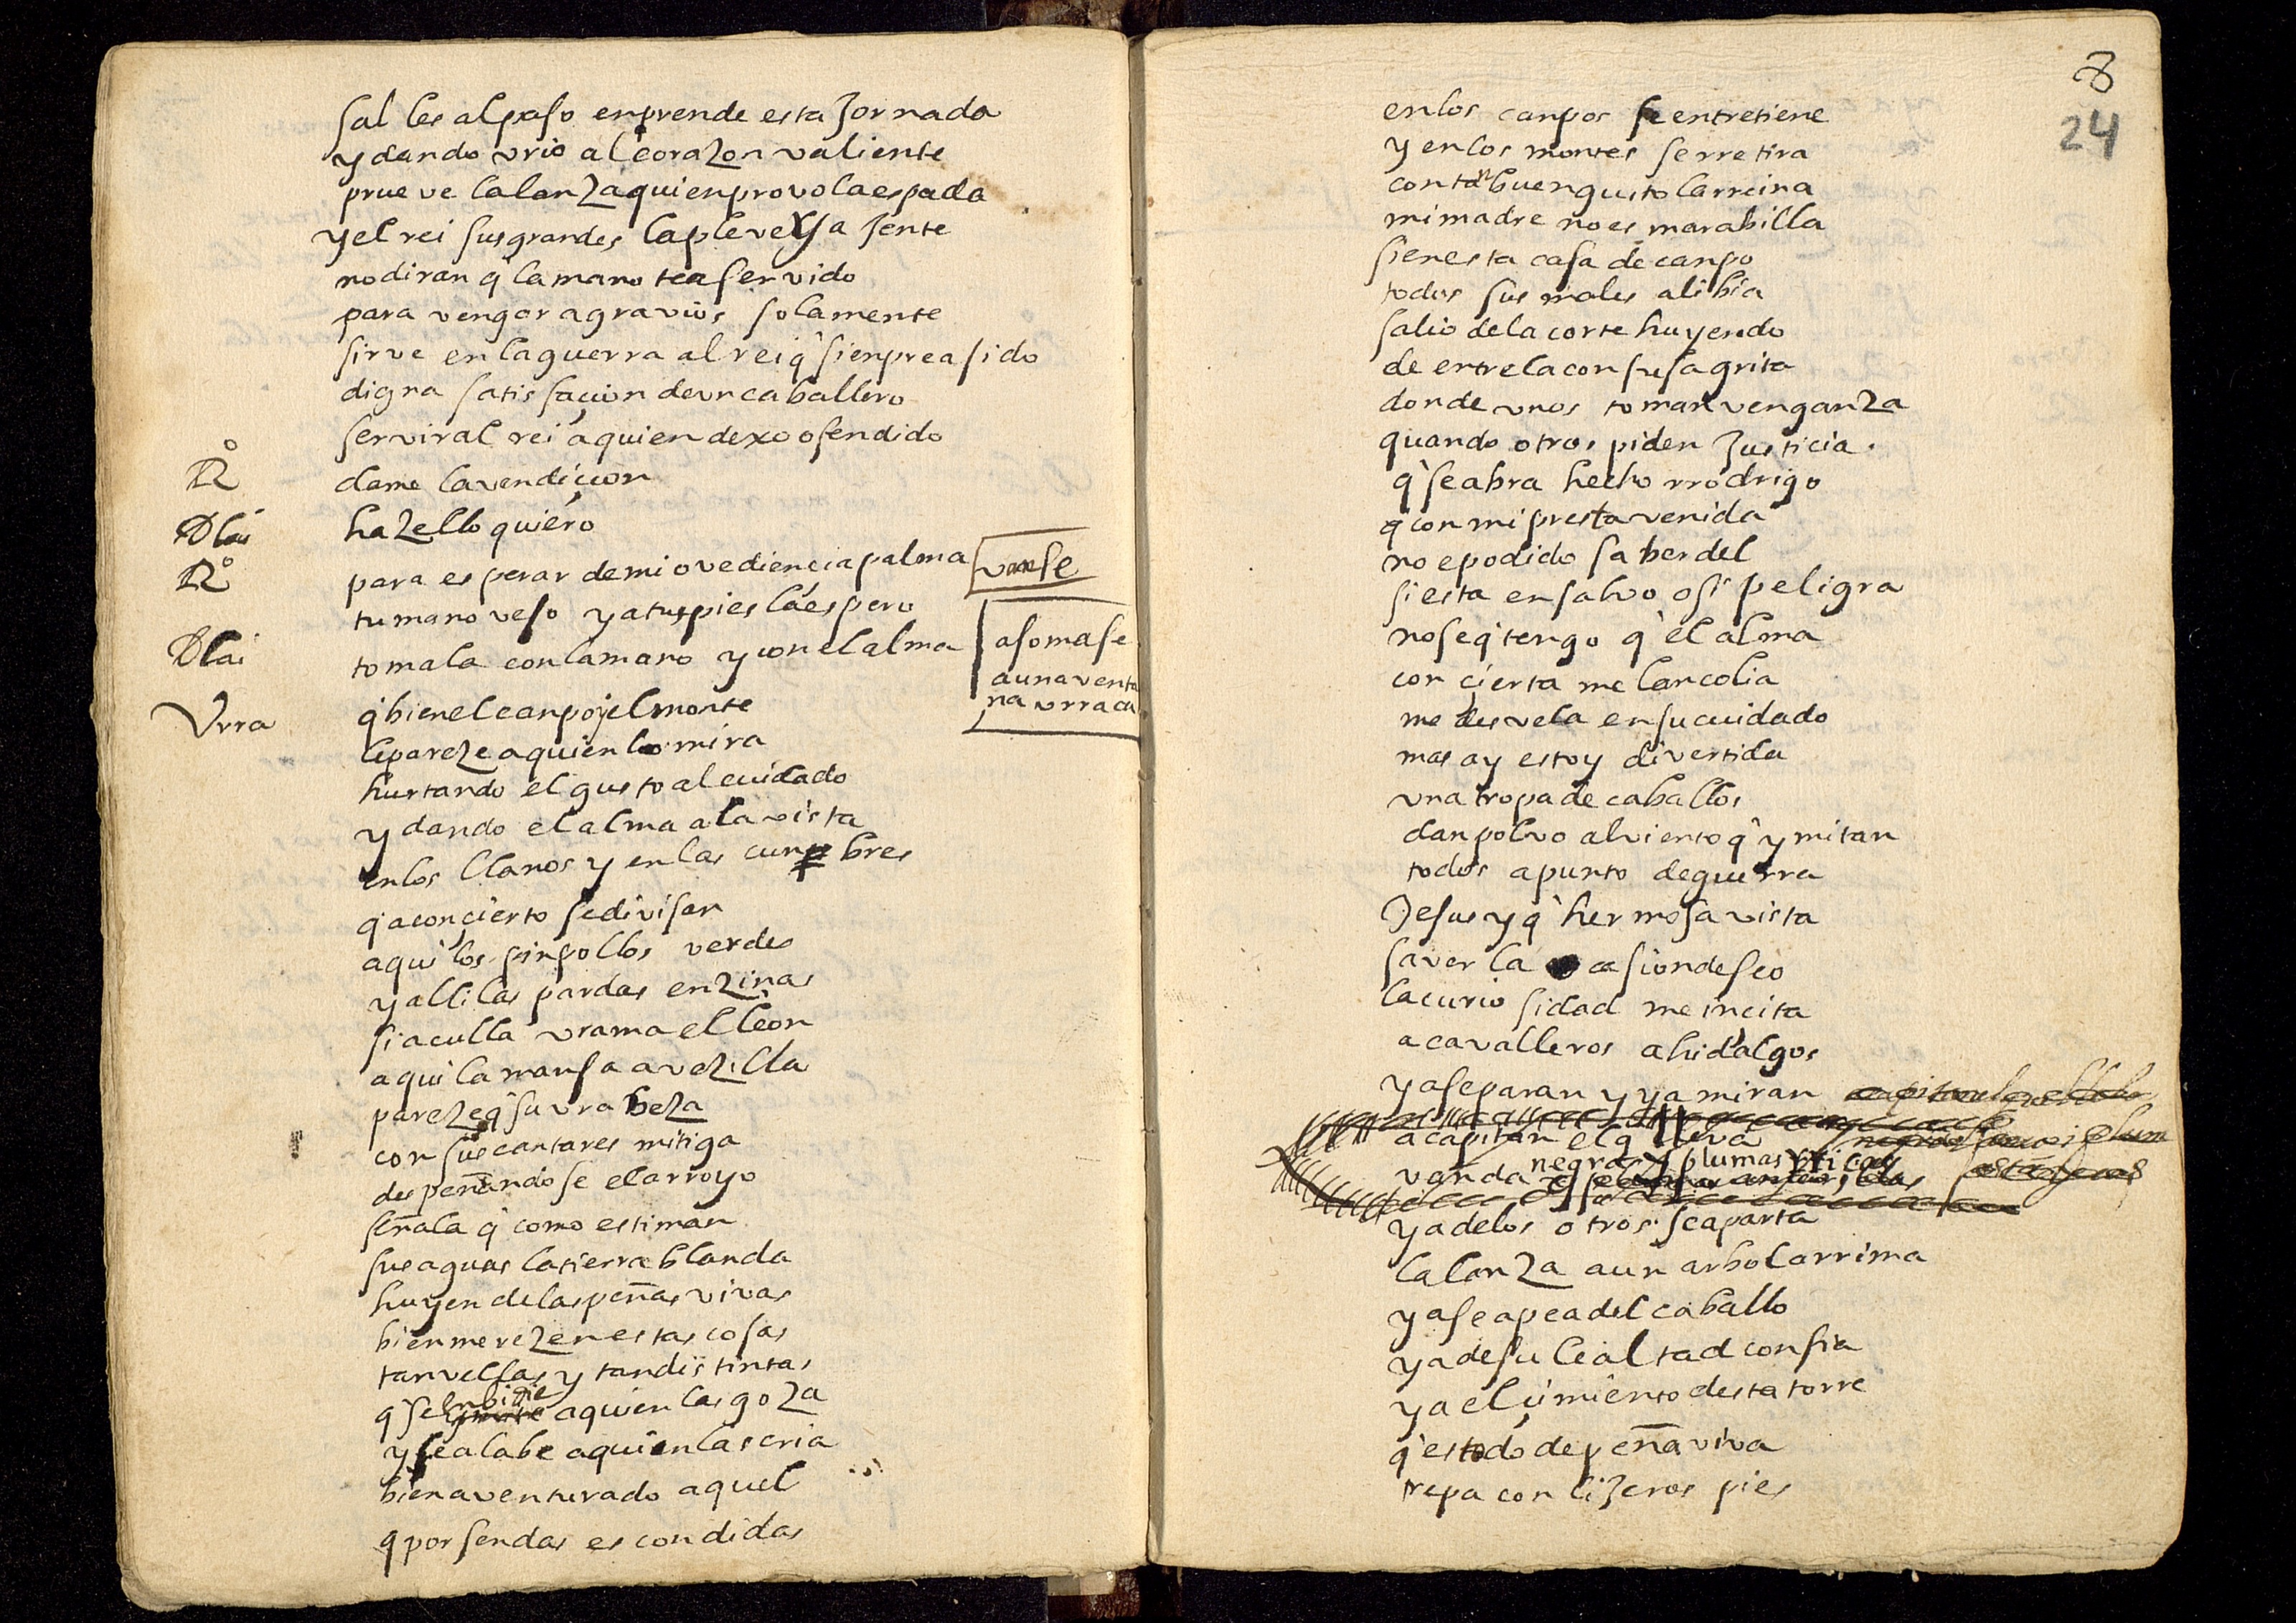 sal les al paso enprende esta Jornada
y dando vrio al corazon valiente
prueve la lanza quien provo la espada
y el rei sus grandes la pleve y la Jente
no diran q̃ la mano tea servido
para vengar agravios solamente
sirve en la guerra al rei q̃ sienpre a sido
digna satisfaçion de vn caballero
servir al rei a quien dexo ofendido
Rº dame la vendiçion
D lai hazello quiero
Rº para esperar de mi ovediencia palma
tu mano veso y a tus pies la espero
D lai tomala con la mano y con el alma
vanse
asomase
a una venta
na vrraca
Vrra q̃ bien el canpo y el monte
le pareze a quien lo mira
hurtando el gusto al cuidado
y dando el alma a la vista
en los llanos y en las cunbres
q̃ a conçierto se divisan
aqui los pinpollos verdes
y alli las pardas enzinas
si aculla vrama el leon
aqui la mansa avezilla
pareze q̃ su vrabeza
con sus cantares mitiga
despeñandose el arroyo
señala q̃ como estiman
sus aguas la tierra blanda
huyen de las peñas vivas
bien merezen estas cosas
tan vellas y tan distintas
q̃ se enbidie a quien las goza
y se alabe a quien las cria
bienaventurado aquel
q por sendas escondidas
8
24
en los canpos se entretiene
y en los montes se rretira
con tan buen gusto la rreina
mi madre no es marabilla
si en esta casa de canpo
todos sus males alibia
salio de la corte huyendo
de entre la confusa grita
donde vnos toman venganza
quando otros piden Justicia.
q̃ se abra hecho rrodrigo
q̃ con mi presta venida
no e podido saber del
si esta en salvo o si peligra
no se q̃ tengo q̃ el alma
con çierta melancolia
me desvela en su cuidado
mas ay estoy divertida
vna tropa de caballos
dan polvo al viento q̃ ymitan
todos a punto de guerra
Jesus y q̃ hermosa vista
saver la ocasion deseo
la curiosidad me incita
a cavalleros a hidalgos
ya se paran y ya miran
a capitan el q̃ lleva
vanda negra y plumas
ya de los otros se aparta
la lanza a un arbol arrima
ya se apea del caballo
ya de su lealtad confia
ya el çimiento desta torre
q̃ es todo de peña viva
trepa con liJeros pies